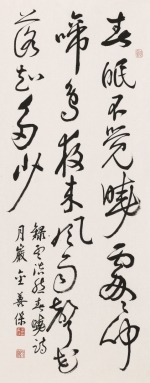 春眠不覺曉處々聞
啼鳥夜來風雨聲花
落知多少
錄孟浩然春曉詩
月巖金善保